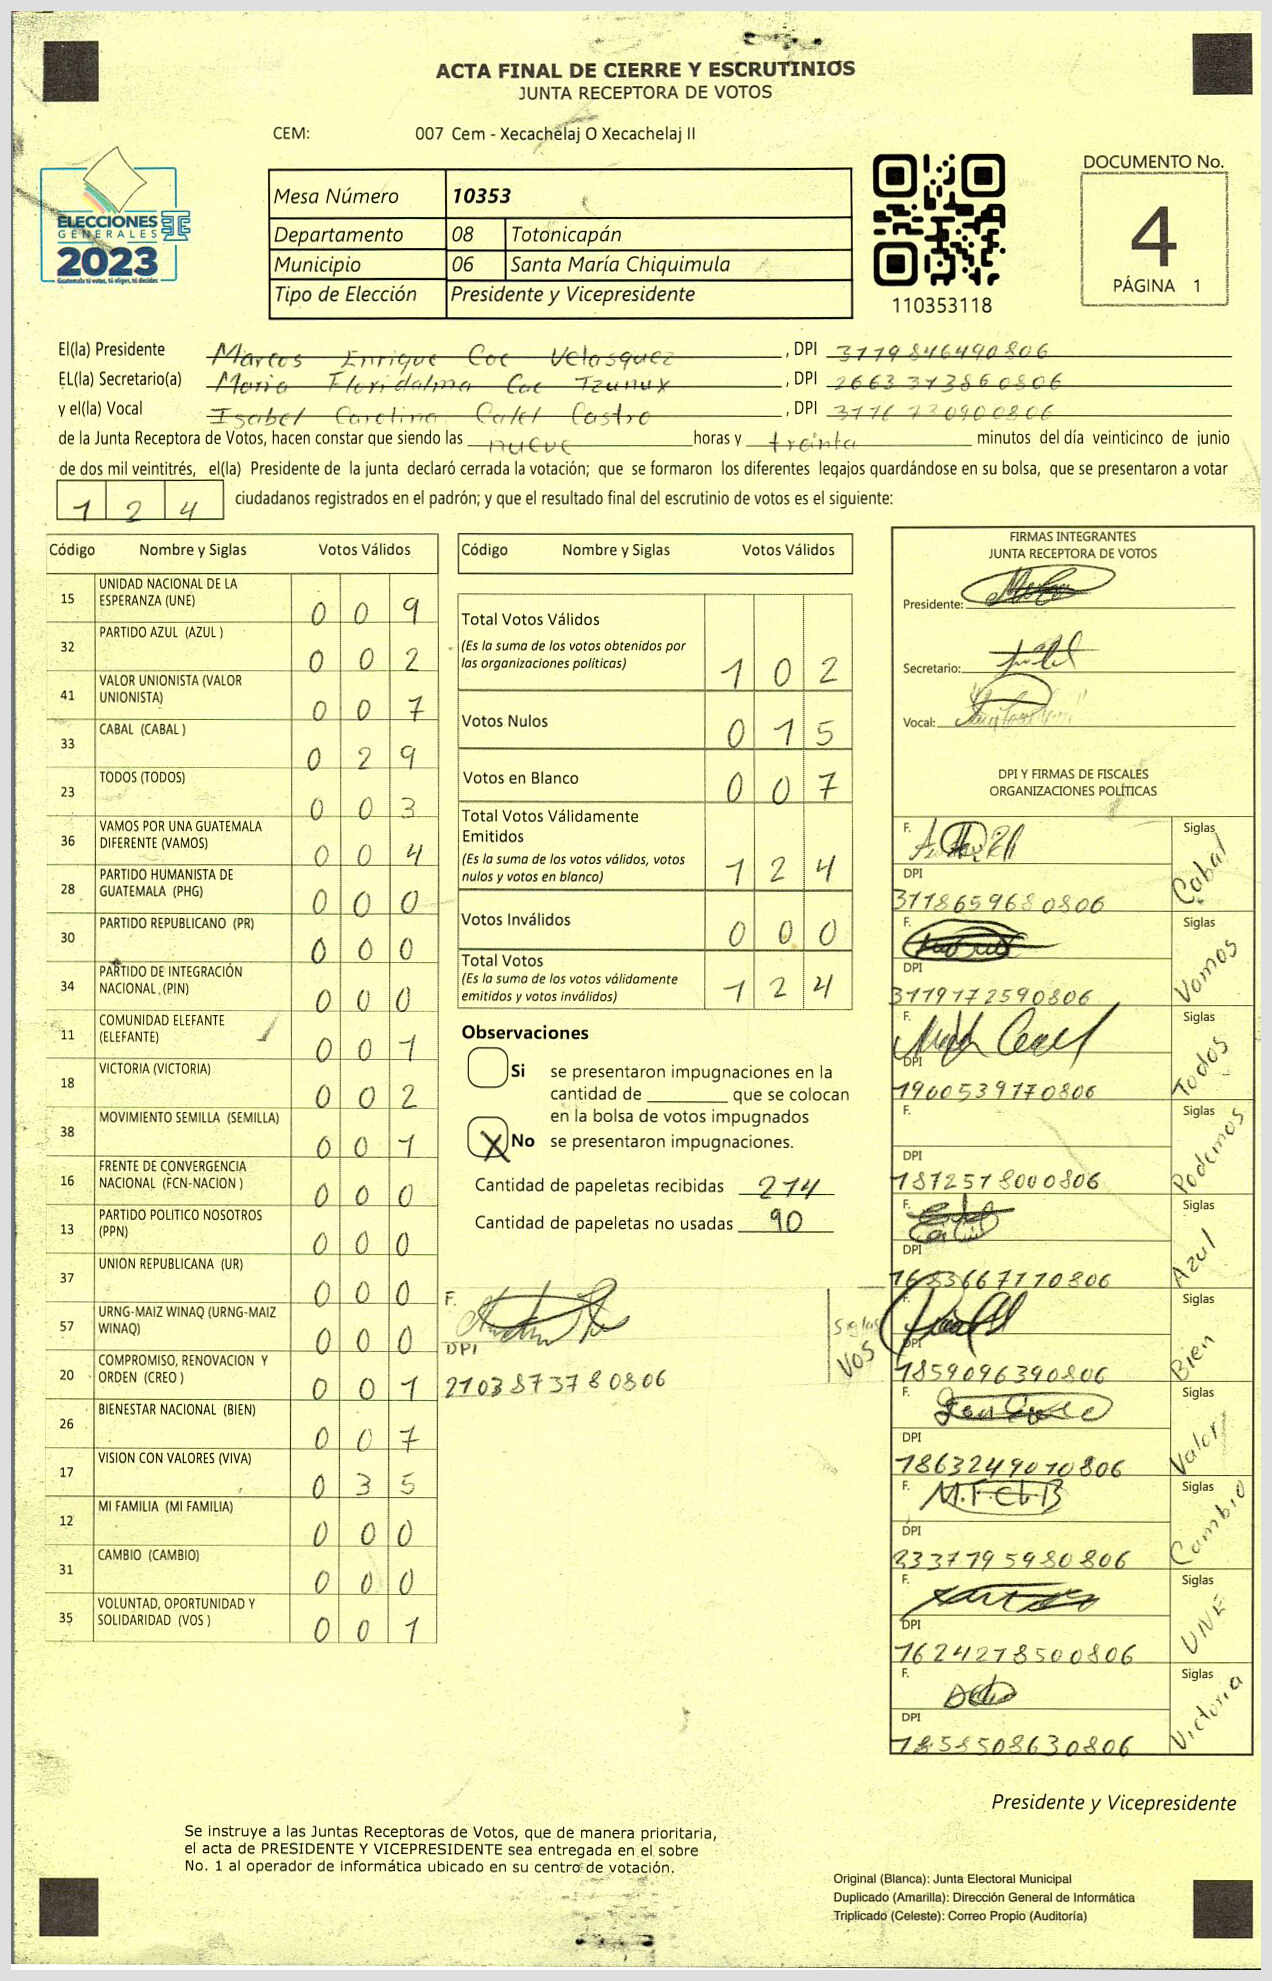 ACTA FINAL DE CIERRE Y ESCRUTINIOS
JUNTA RECEPTORA DE VOTOS
CEM: 007 Cem - Xecachelaj O Xecachelaj II
ELECCIONES
GENERALES
2023
Guatemala tú votas, tú eliges, tú decides
Mesa Número 10353
Departamento 08 Totonicapán
Municipio 06 Santa María Chiquimula
Tipo de Elección Presidente y Vicepresidente
110353118
DOCUMENTO No.
4
PÁGINA 1
El(la) Presidente Marcos Enrique Coc Velasquez, DPI 3779846490806
EL(la) Secretario(a) Maria Floridalma Coc Tzunux, DPI 2663373860806
y el(la) Vocal Isabel Carolina Calel Castro, DPI 3776720900806
de la Junta Receptora de Votos, hacen constar que siendo las nueve horas y treinta minutos del día veinticinco de junio
de dos mil veintitrés, el(la) Presidente de la junta declaró cerrada la votación; que se formaron los diferentes legajos quardándose en su bolsa, que se presentaron a votar
124 ciudadanos registrados en el padrón; y que el resultado final del escrutinio de votos es el siguiente:
Código Nombre y Siglas Votos Válidos
15 UNIDAD NACIONAL DE LA ESPERANZA (UNE) 0 0 9
32 PARTIDO AZUL (AZUL ) 0 0 2
41 VALOR UNIONISTA (VALOR UNIONISTA) 0 0 7
33 CABAL (CABAL ) 0 2 9
23 TODOS (TODOS) 0 0 3
36 VAMOS POR UNA GUATEMALA DIFERENTE (VAMOS) 0 0 4
28 PARTIDO HUMANISTA DE GUATEMALA (PHG) 0 0 0
30 PARTIDO REPUBLICANO (PR) 0 0 0
34 PARTIDO DE INTEGRACIÓN NACIONAL (PIN) 0 0 0
11 COMUNIDAD ELEFANTE (ELEFANTE) 0 0 1
18 VICTORIA (VICTORIA) 0 0 2
38 MOVIMIENTO SEMILLA (SEMILLA) 0 0 1
16 FRENTE DE CONVERGENCIA NACIONAL (FCN-NACION ) 0 0 0
13 PARTIDO POLITICO NOSOTROS (PPN) 0 0 0
37 UNION REPUBLICANA (UR) 0 0 0
57 URNG-MAIZ WINAQ (URNG-MAIZ WINAQ) 0 0 0
20 COMPROMISO, RENOVACION Y ORDEN (CREO ) 0 0 1
26 BIENESTAR NACIONAL (BIEN) 0 0 7
17 VISION CON VALORES (VIVA) 0 3 5
12 MI FAMILIA (MI FAMILIA) 0 0 0
31 CAMBIO (CAMBIO) 0 0 0
35 VOLUNTAD, OPORTUNIDAD Y SOLIDARIDAD (VOS ) 0 0 1
Código Nombre y Siglas Votos Válidos
Total Votos Válidos
(Es la suma de los votos obtenidos por
las organizaciones politicas) 1 0 2
Votos Nulos 0 1 5
Votos en Blanco 0 0 7
Total Votos Válidamente
Emitidos
(Es la suma de los votos válidos, votos
nulos y votos en blanco) 1 2 4
Votos Inválidos 0 0 0
Total Votos
(Es la suma de los votos válidamente
emitidos y votos inválidos) 1 2 4
Observaciones
Si se presentaron impugnaciones en la
cantidad de ________ que se colocan
en la bolsa de votos impugnados
X No se presentaron impugnaciones.
Cantidad de papeletas recibidas 214
Cantidad de papeletas no usadas 90
F.
DPI
2103873780806
Siglas
VOS
FIRMAS INTEGRANTES
JUNTA RECEPTORA DE VOTOS
Presidente:
Secretario:
Vocal:
DPI Y FIRMAS DE FISCALES
ORGANIZACIONES POLÍTICAS
F. Siglas
DPI Cabal
3778659680806
F. Siglas
DPI Vamos
3779172590806
F. Siglas
DPI Todos
1960539170806
F. Siglas
DPI Podemos
1872518000806
F. Siglas
DPI Azul
1683667170806
F. Siglas
DPI Bien
1859096390806
F. Siglas
DPI Valor
1863249070806
F. Siglas
DPI Cambio
2337795980806
F. Siglas
DPI UNE
1624278500806
F. Siglas
DPI Victoria
1858508630806
Presidente y Vicepresidente
Se instruye a las Juntas Receptoras de Votos, que de manera prioritaria,
el acta de PRESIDENTE Y VICEPRESIDENTE sea entregada en el sobre
No. 1 al operador de informática ubicado en su centro de votación.
Original (Blanca): Junta Electoral Municipal
Duplicado (Amarilla): Dirección General de Informática
Triplicado (Celeste): Correo Propio (Auditoría)